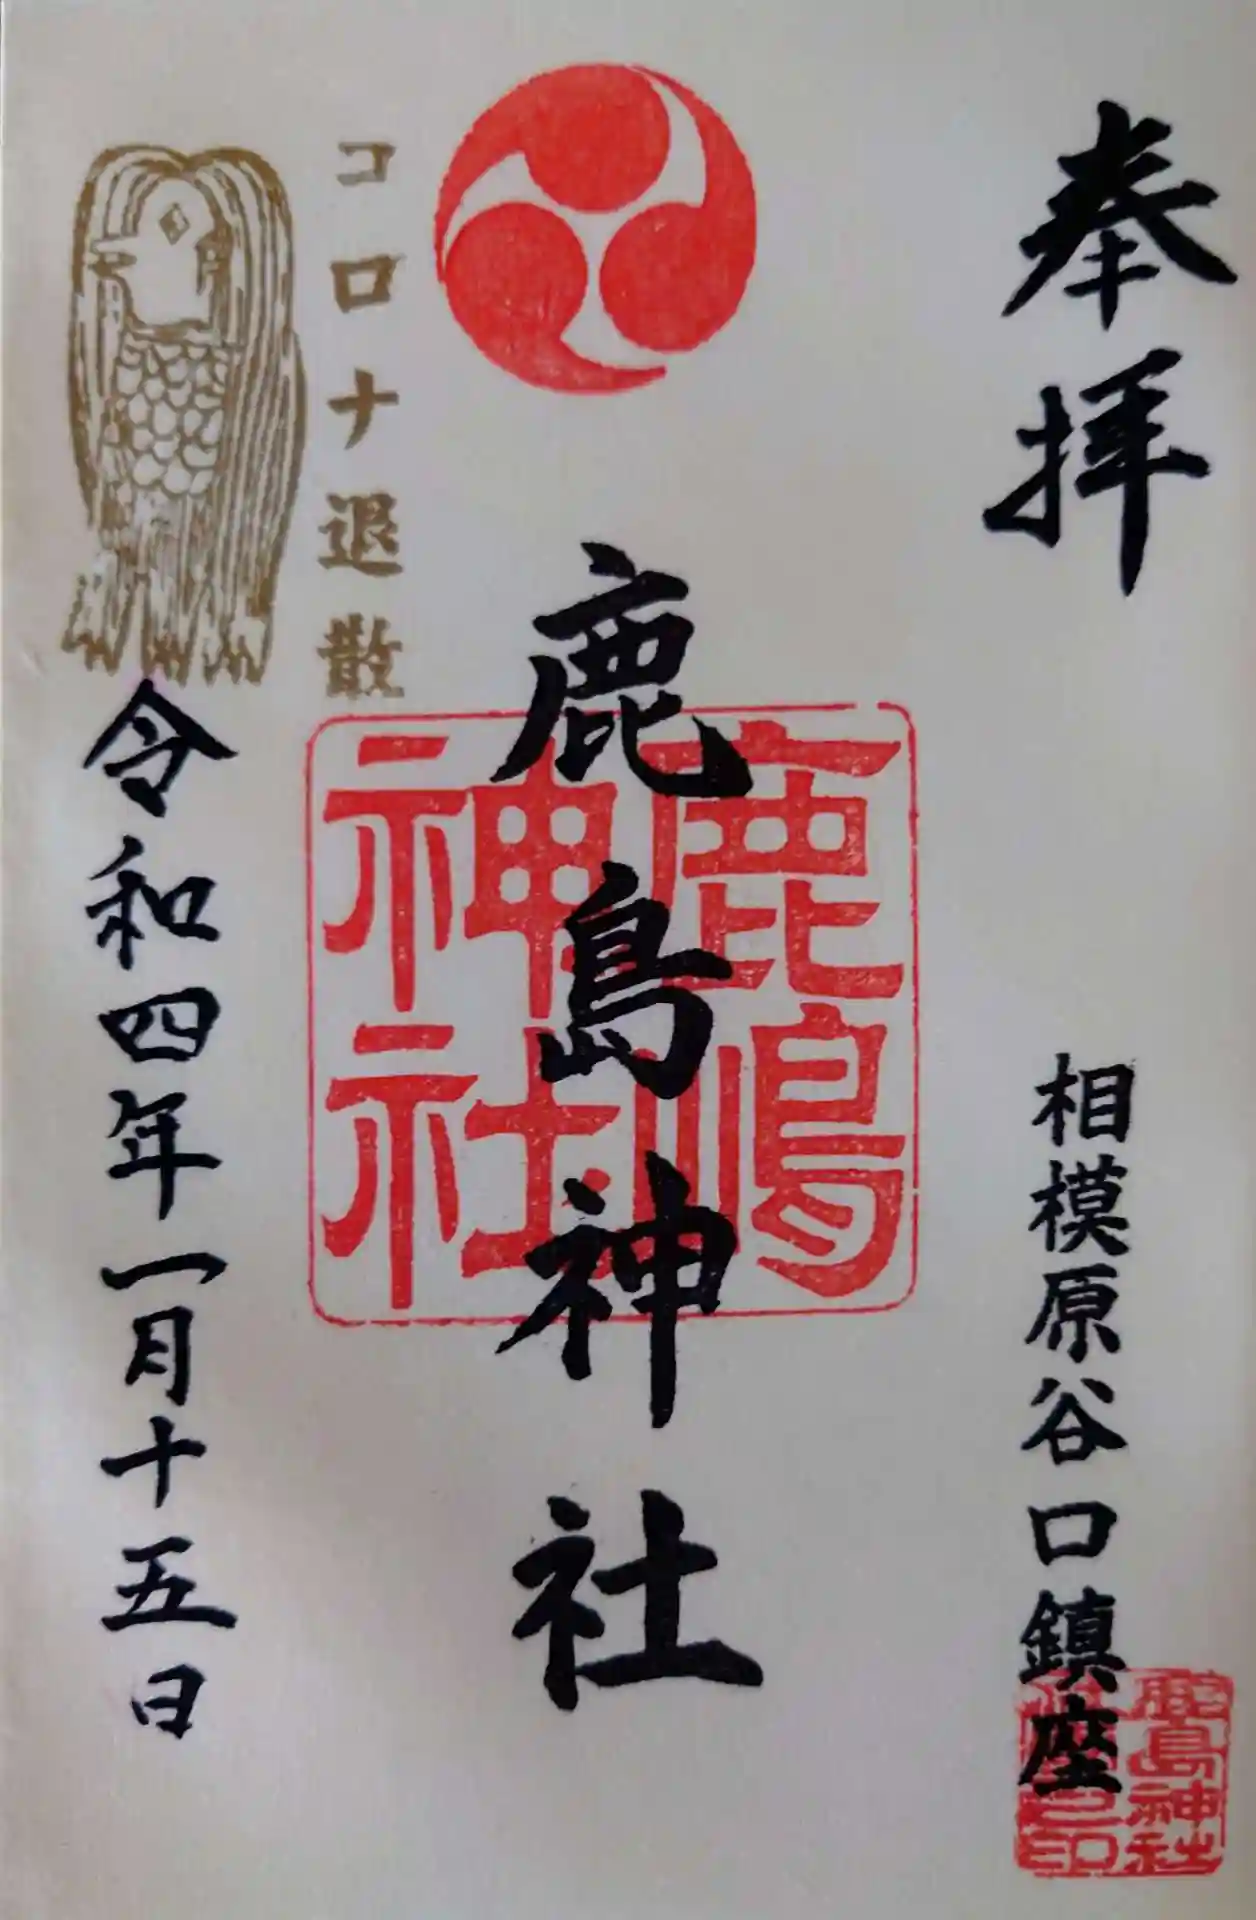 奉拝
相模原谷口鎮座
鹿島神社
鹿島神社
鹿嶋
神社
コロナ退散
令和四年一月十五日